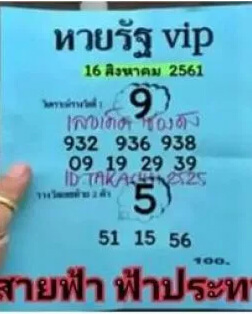 หวยรัฐ vip
16 สิงหาคม 2561
วิเคราะห์รางวัลที่ 1
9
เลขเด็ด ช่องดัง
932 936 938
09 19 29 39
ID.TAKASHI2525
รางวัลเลขท้าย 2 ตัว
5
51 15 56
100.-
สายฟ้า ฟ้าประทา